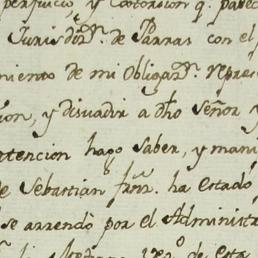 perjuicio, y extorcion q.e parec
Jurisdiz.n de Parras con el p
miento de mi Obligaz.n repres
ion, y disuadir a dho Señor y
atencion hago saber, y mani
de Sebastian ha estado
se arrendo por el Administ
de esta